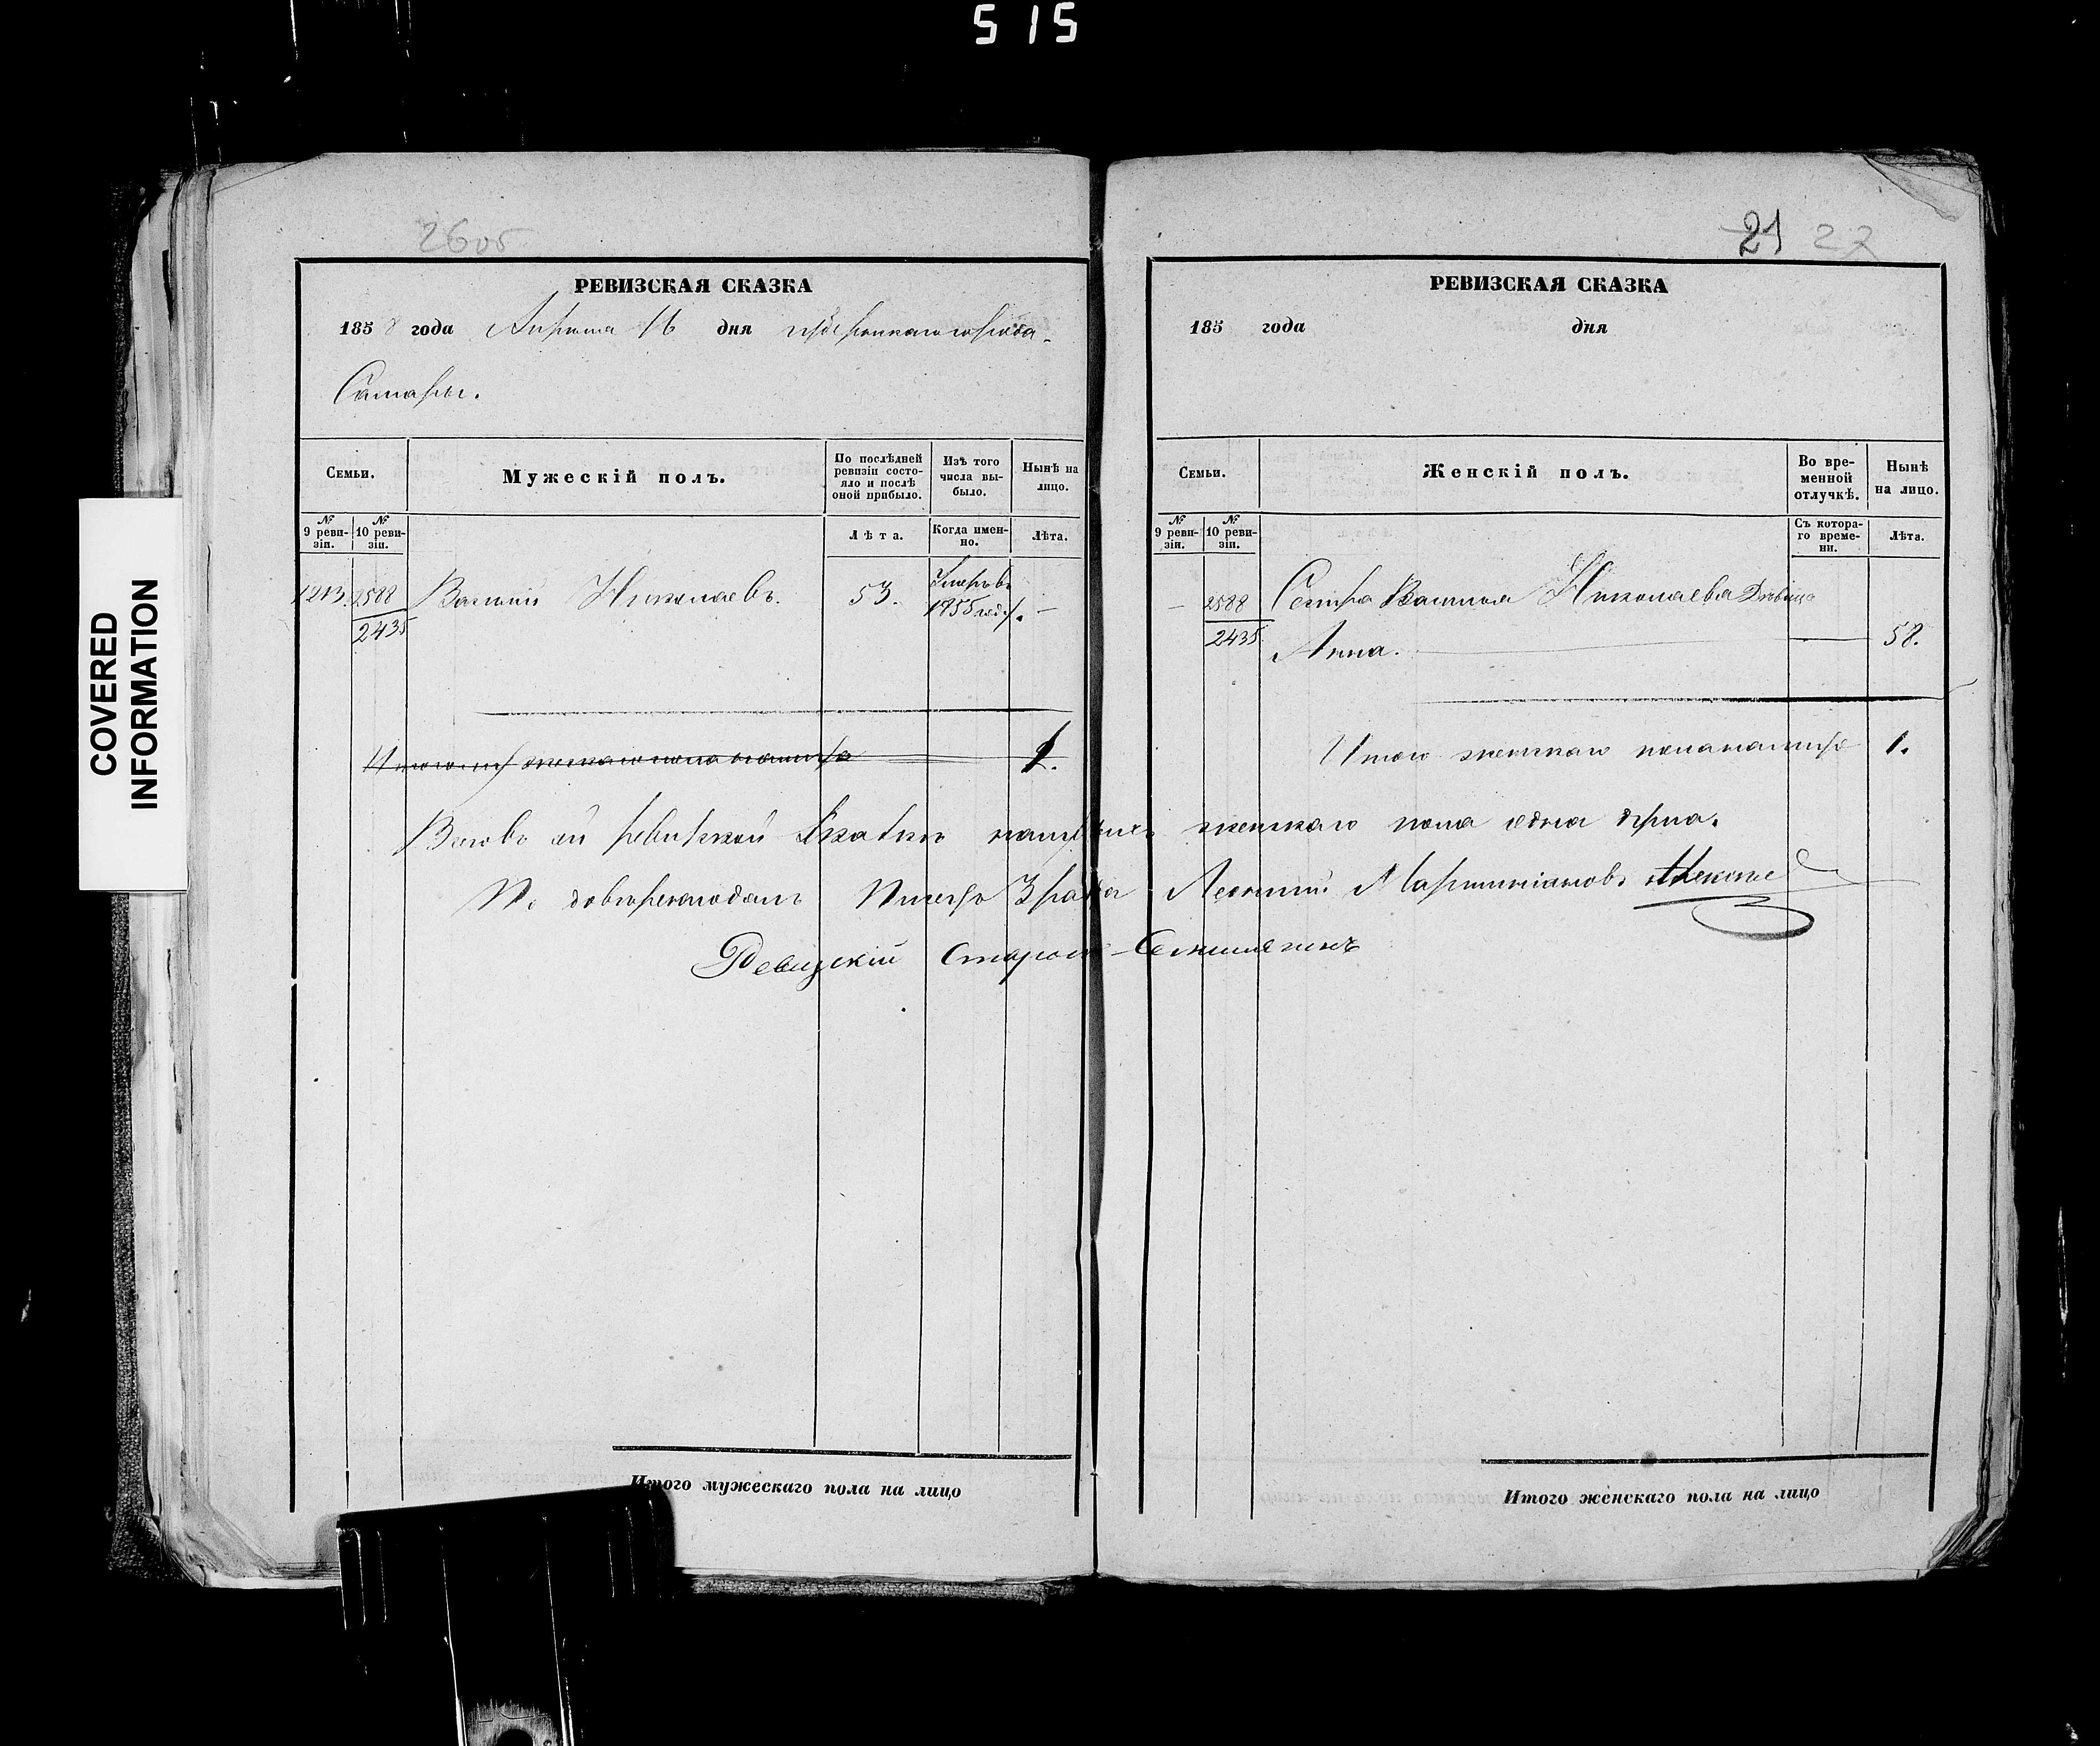 515
2605
РЕВИЗСКАЯ СКАЗКА
1858 года Апреля 16 дня губернскаго города
Самары.
Семьи.
Мужескій полъ.
По послѣдней ревизіи состояло и послѣ оной прибыло.
Изъ того числа выбыло.
Нынѣ на лицо.
№ 9 ревизіи.
№ 10 ревизіи.
Лѣта.
Когда именно.
Лѣта.
1213. 2588 Василій Николаевъ. 53. Умеръ въ 1855 году. —
2435
1.
COVERED INFORMATION
Итого мужескаго пола на лицо
21 27
РЕВИЗСКАЯ СКАЗКА
185 года дня
Семьи.
Женскій полъ.
Во временной отлучкѣ.
Нынѣ на лицо.
№ 9 ревизіи.
№ 10 ревизіи.
Съ котораго времени.
Лѣта.
— 2588 Сестра Василья Николаева Дѣвица
2435 Анна. — 58.
Итого женскаго пола на лицо 1.
ревизской сказкѣ женскаго пола одна душа.
Леонтій Мартиніановъ
Ревизскій Староста
Итого женскаго пола на лицо